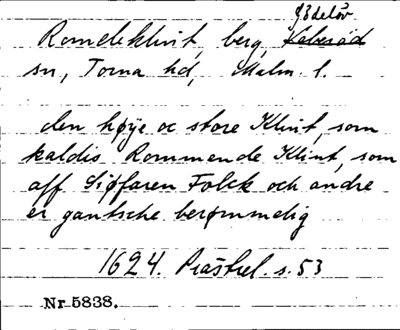 S. Edelöv
Romeleklint, berg, Veberöd
sn, Torna hd, Malm. l.
den høÿe oc store Klint, som
kaldis Rommende Klint, som
aff Siøfaren Folck och andre
er gantsche berømmelig
1624. Prästrel. s. 53
Nr 5838.